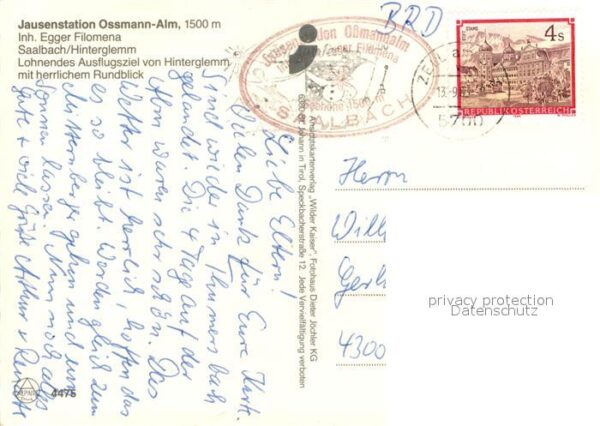 Jausenstation Ossmann-Alm, 1500 m
Inh. Egger Filomena
Saalbach/Hinterglemm
Lohnendes Ausflugsziel von Hinterglemm
mit herrlichem Rundblick
Liebe Eltern!
Vielen Dank für Eure Karte.
Sind wieder in Thumersbach
gelandet. Die 4 Tage auf der
Alm waren sehr schön. Das
Wetter ist herrlich, hoffen das
es so bleibt. Werden gleich zum
Mitterberg gehen und uns
sonnen lassen. Nun noch alles
gute + viele Grüße Arthur + Renate
Ansichtskartenverlag „Wilder Kaiser“, Fotohaus Dieter Jöchler KG
St. Johann in Tirol, Speckbacherstraße 12. Jede Vervielfältigung verboten
4475
BRD
Jausenstation Oßmannalm
Filomena
Seehöhe 1500 m
SAALBACH
STAMS
4 s
REPUBLIK ÖSTERREICH
ZELL a
13.-9.
5700
Herrn
Willi
Gerl
4300
privacy protection
Datenschutz